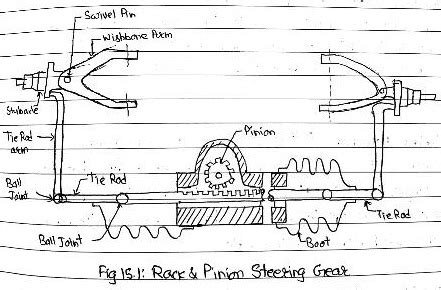 Swivel Pin
Wishbone Arm
Stubaxle
Tie Rod
arm
Pinion
Ball
Joint
Tie Rod
Tie Rod
Ball Joint
Boot
Fig 15.1: Rack & Pinion Steering Gear